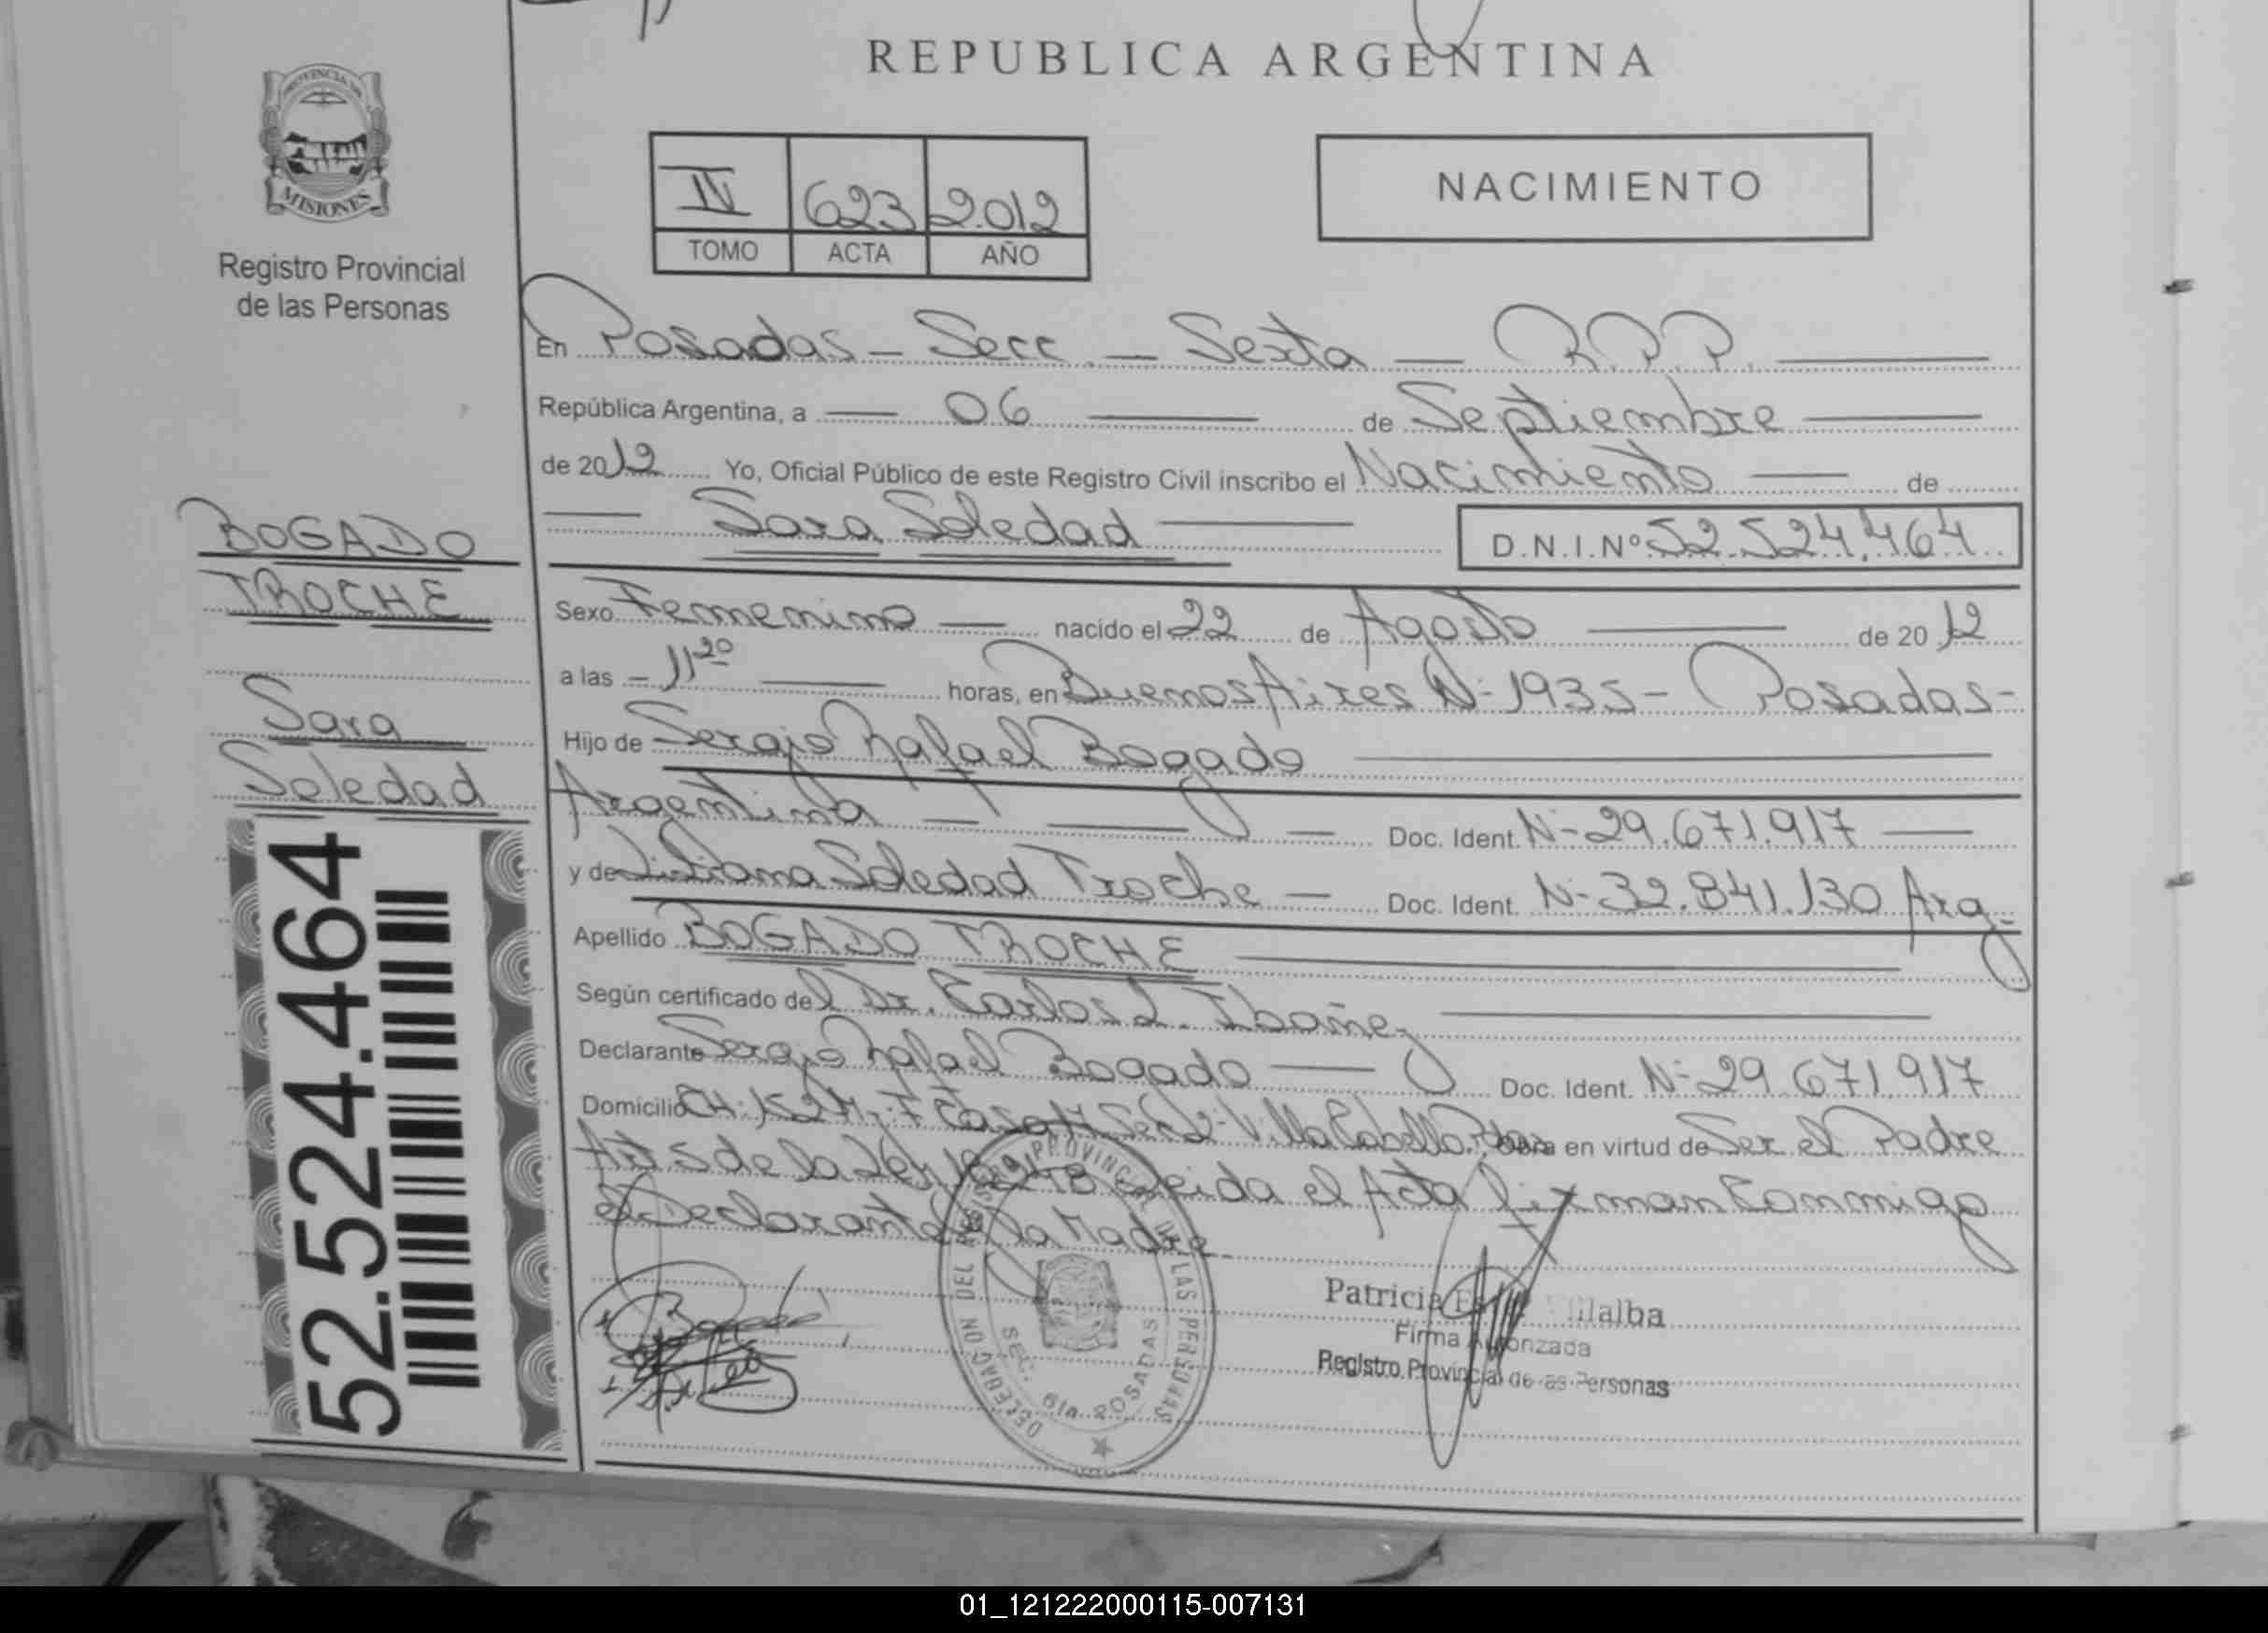 REPUBLICA ARGENTINA
PROVINCIA DE
MISIONES
Registro Provincial
de las Personas
IV 623 2.012
TOMO ACTA AÑO
NACIMIENTO
En Posadas - Secc. - Sexta - R.P.P.
República Argentina, a 06 de Septiembre
de 2012 Yo, Oficial Público de este Registro Civil inscribo el Nacimiento de
Sara Soledad
D.N.I.Nº 52.524.464
BOGADO
TROCHE
Sara
Soledad
52.524.464
Sexo Femenino nacido el 22 de Agosto de 2012
a las - 11 20 horas, en Buenos Aires Nº 1935 - Posadas -
Hijo de Sergio Rafael Bogado
Argentina Doc. Ident. Nº 29.671.917
y de Liliana Soledad Troche - Doc. Ident. Nº 32.841.130 Arg.
Apellido BOGADO TROCHE
Según certificado del Dr. Carlos L. Ibañez
Declarante Sergio Rafael Bogado Doc. Ident. Nº 29.671.917
Domicilio Villa Cabello en virtud de Ser el Padre
de la Leida el Acta firman Conmigo
el Declarante la Madre
DELEGACION DEL REGISTRO PROVINCIAL DE LAS PERSONAS
SEC. 6ta POSADAS
Patricia Villalba
Firma Autorizada
Registro Provincial de las Personas
01_121222000115-007131